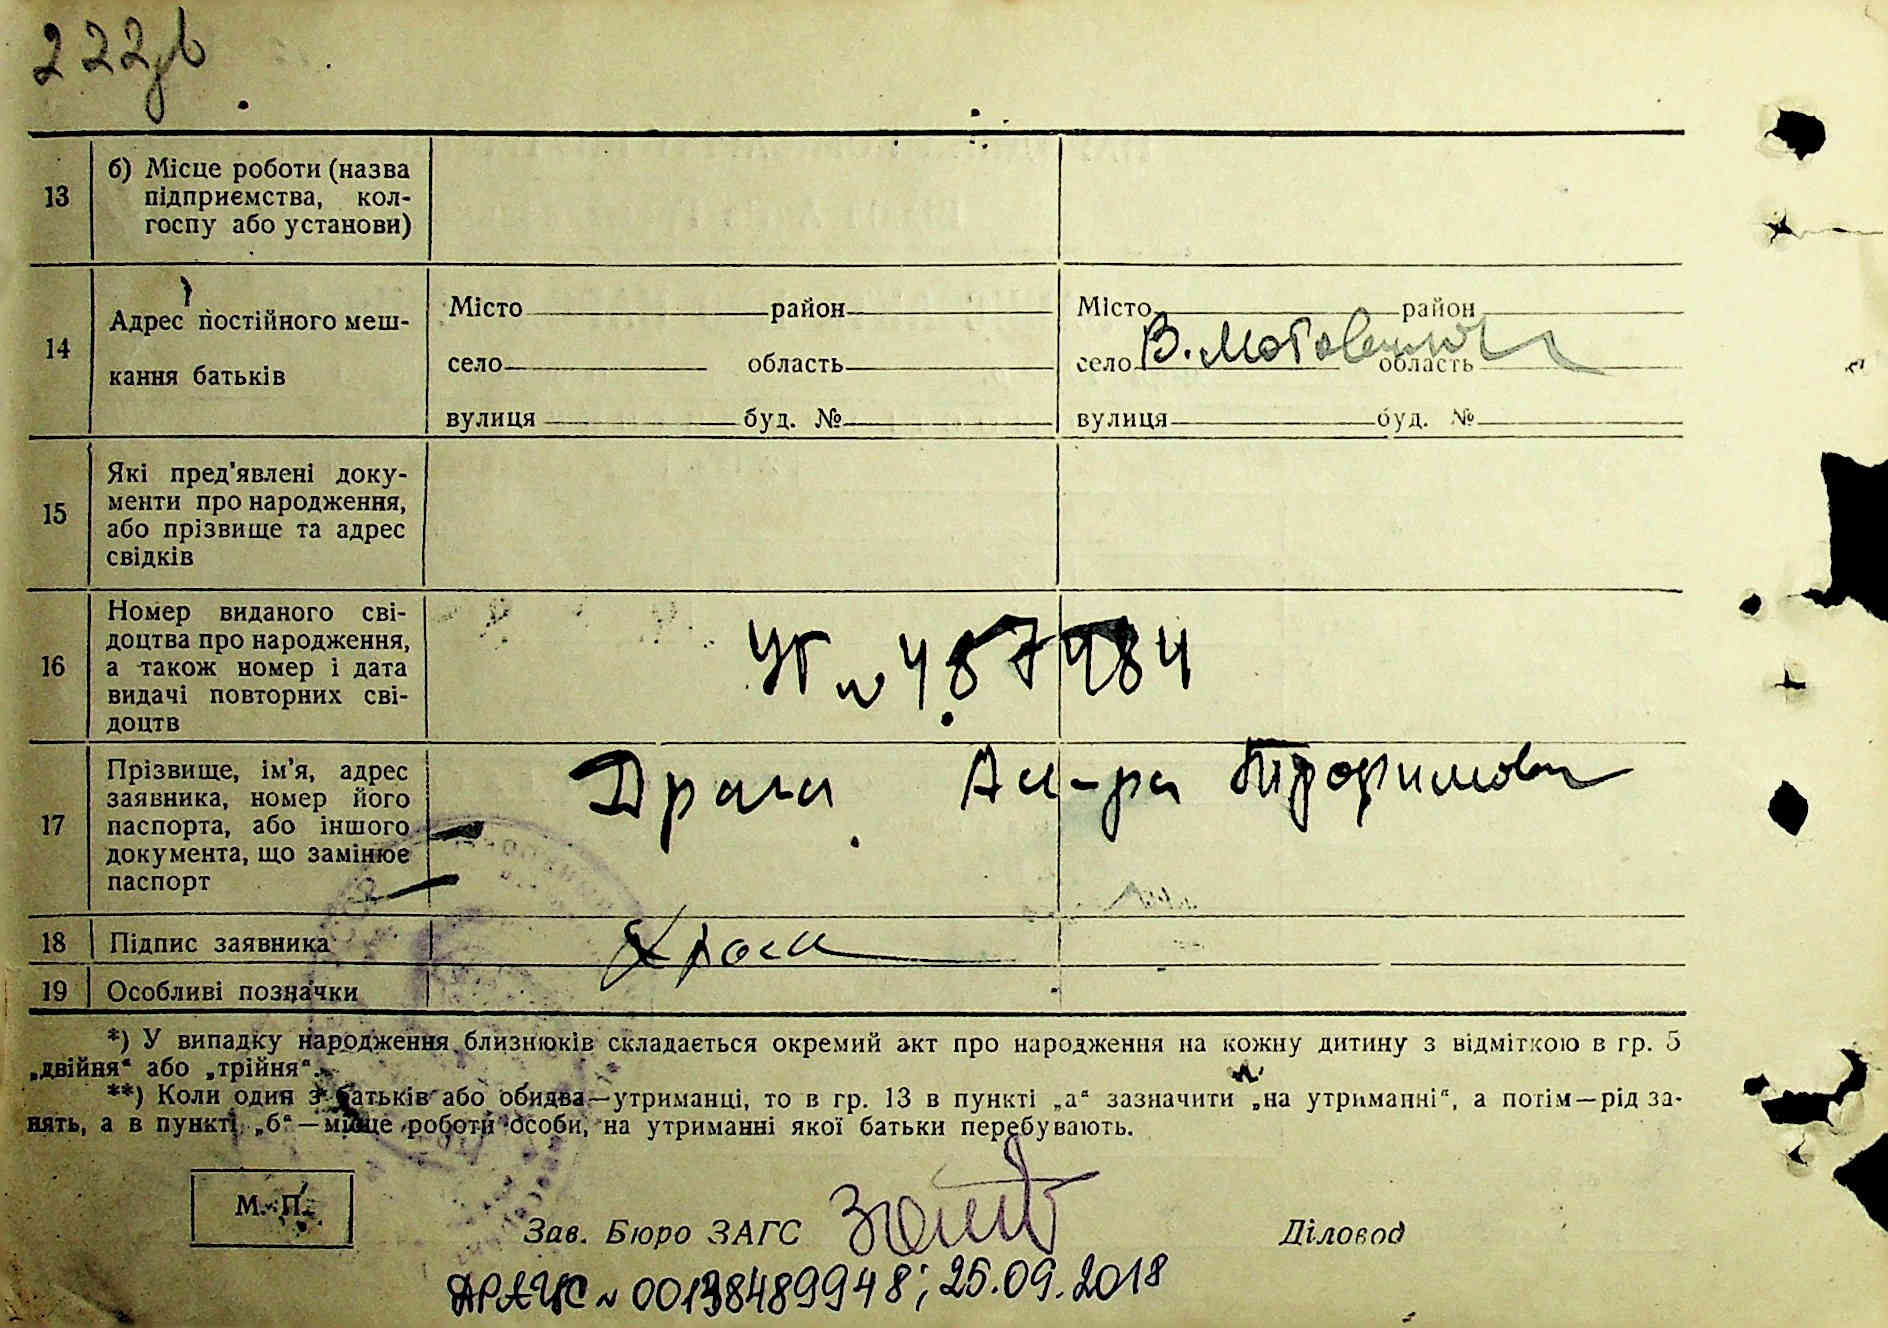 222зв
13 б) Місце роботи (назва
підприємства, кол-
госпу або установи)
14 Адрес постійного меш-
кання батьків
Місто район
село область
вулиця буд. №
Місто район
село В. Мотовилівка область
вулиця буд. №
15 Які пред'явлені доку-
менти про народження,
або прізвище та адрес
свідків
16 Номер виданого сві-
доцтва про народження,
а також номер і дата
видачі повторних сві-
доцтв
УГ № 487984
17 Прізвище, ім'я, адрес
заявника, номер його
паспорта, або іншого
документа, що замінює
паспорт
Ал-ра Трофимовна
18 Підпис заявника
19 Особливі позначки
*) У випадку народження близнюків складається окремий акт про народження на кожну дитину з відміткою в гр. 5
„двійня“ або „трійня“.
**) Коли один з батьків або обидва—утриманці, то в гр. 13 в пункті „а“ зазначити „на утриманні“, а потім—рід за-
нять, а в пункті „б“—місце роботи особи, на утриманні якої батьки перебувають.
М. П.
Зав. Бюро ЗАГС
Діловод
ДРАЦС № 00138489948; 25.09.2018